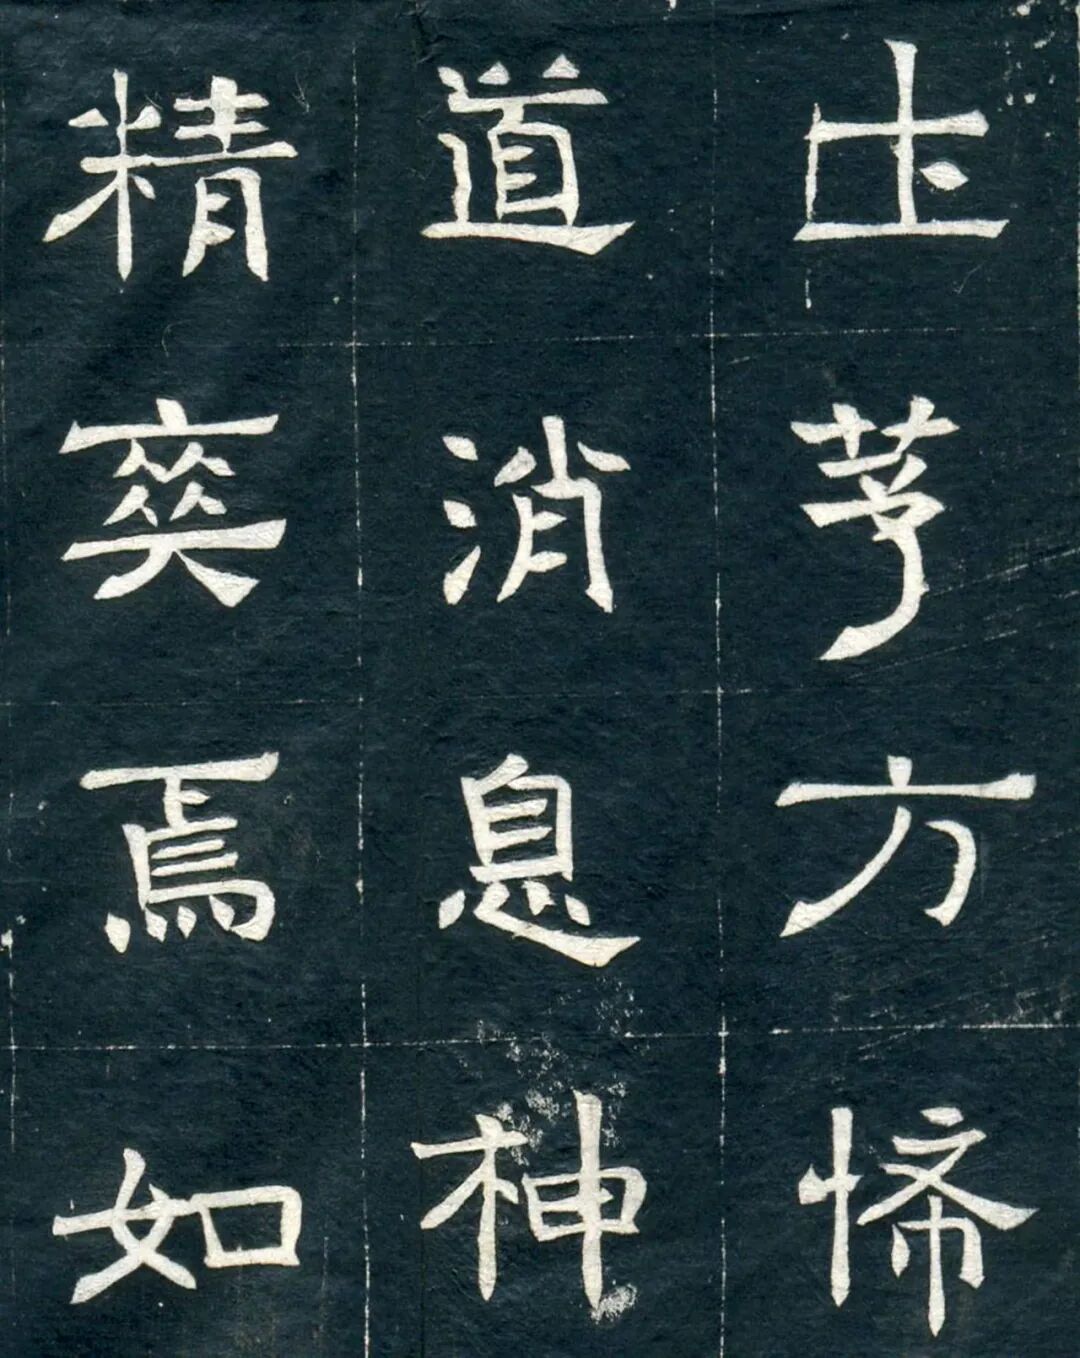 土茅方悕
道消息神
精爽焉如